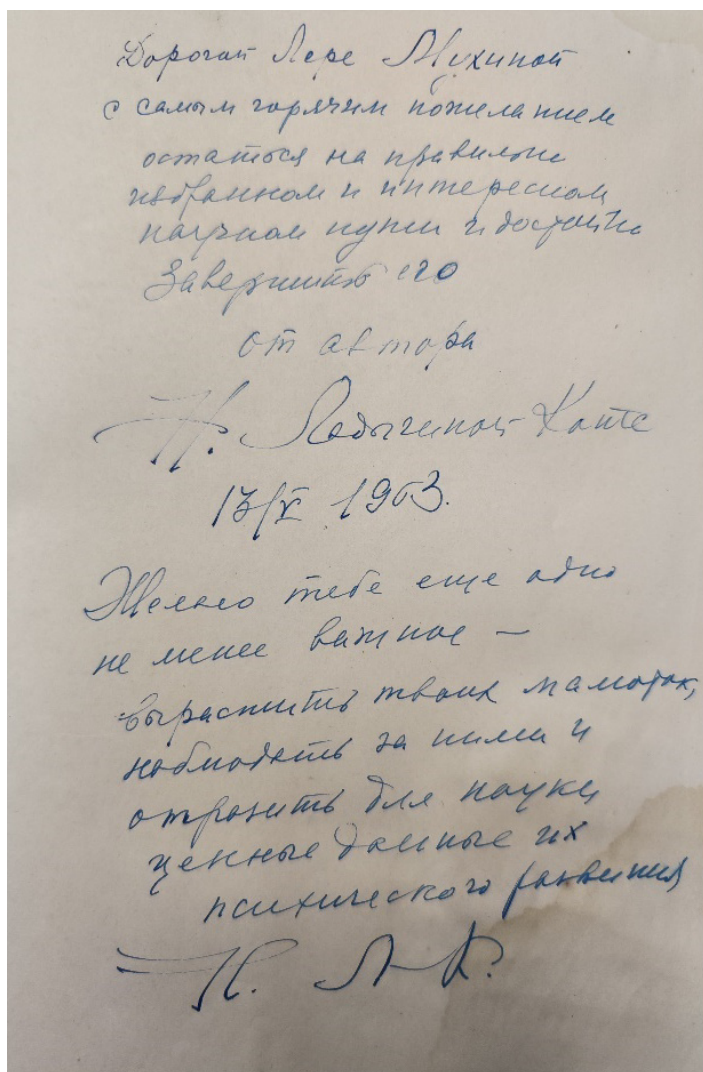 Дорогой Лере Мухиной
с самым горячим пожеланием
остаться на правильно
избранном и интересном
научном пути и достойно
завершить его
от автора
Н. Ладыгиной-Котс
13/X 1963.
Желаю тебе еще одно
не менее важное —
вырастить твоих малюток,
наблюдать за ними и
отразить для науки
ценные данные их
психического развития
Н. Л-К.